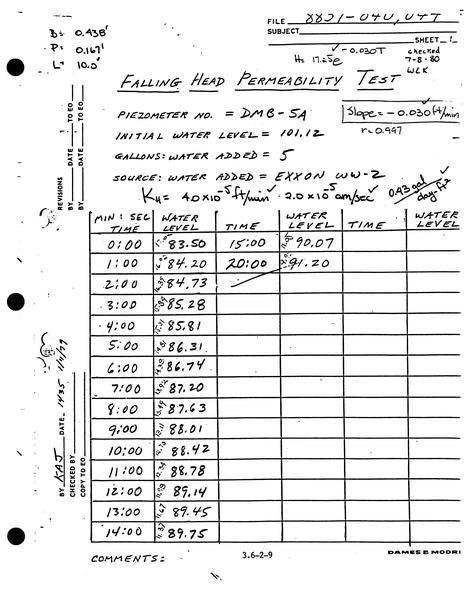 FILE 8821-040, 04T
SUBJECT
SHEET 1
D= 0.438'
P= 0.167'
L= 10.0'
H= 17.25e -0.030T
checked
7-8-80
WLK
FALLING HEAD PERMEABILITY TEST
PIEZOMETER NO. = DMB-5A
Slope = -0.030 ft/min
r=0.997
INITIAL WATER LEVEL = 101.12
GALLONS: WATER ADDED = 5
SOURCE: WATER ADDED = EXXON WW-2
KH = 4.0x10⁻⁵ ft/min 2.0x10⁻⁵ cm/sec 0.43 gal/day-ft²
MIN: SEC TIME WATER LEVEL TIME WATER LEVEL TIME WATER LEVEL
0:00 83.50 15:00 90.07
1:00 84.20 20:00 91.20
2:00 84.73
3:00 85.28
4:00 85.81
5:00 86.31
6:00 86.74
7:00 87.20
8:00 87.63
9:00 88.01
10:00 88.42
11:00 88.78
12:00 89.14
13:00 89.45
14:00 89.75
COMMENTS:
3.6-2-9
DAMES & MOORE
REVISIONS
BY DATE TO EO
BY DATE TO EO
BY KAJ DATE 1435
CHECKED BY
COPY TO EO